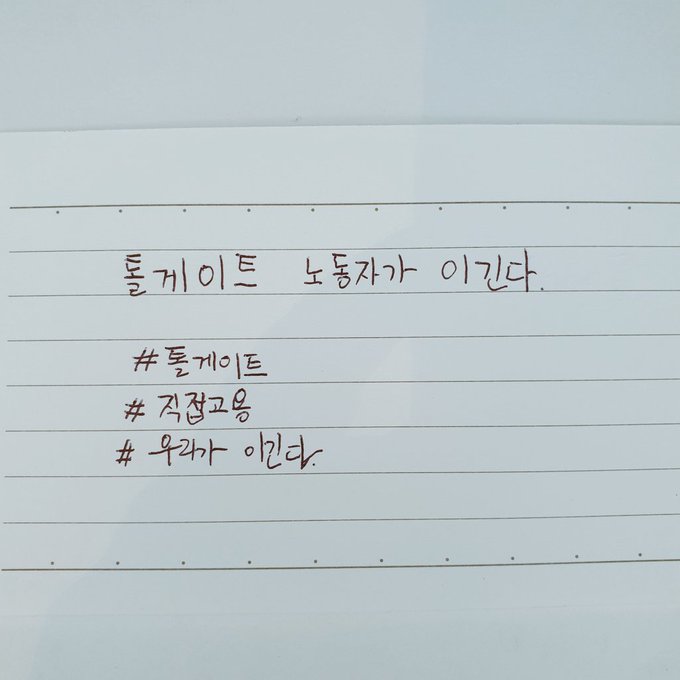 톨게이트 노동자가 이긴다.
#톨게이트
# 직접고용
# 우리가 이긴다.